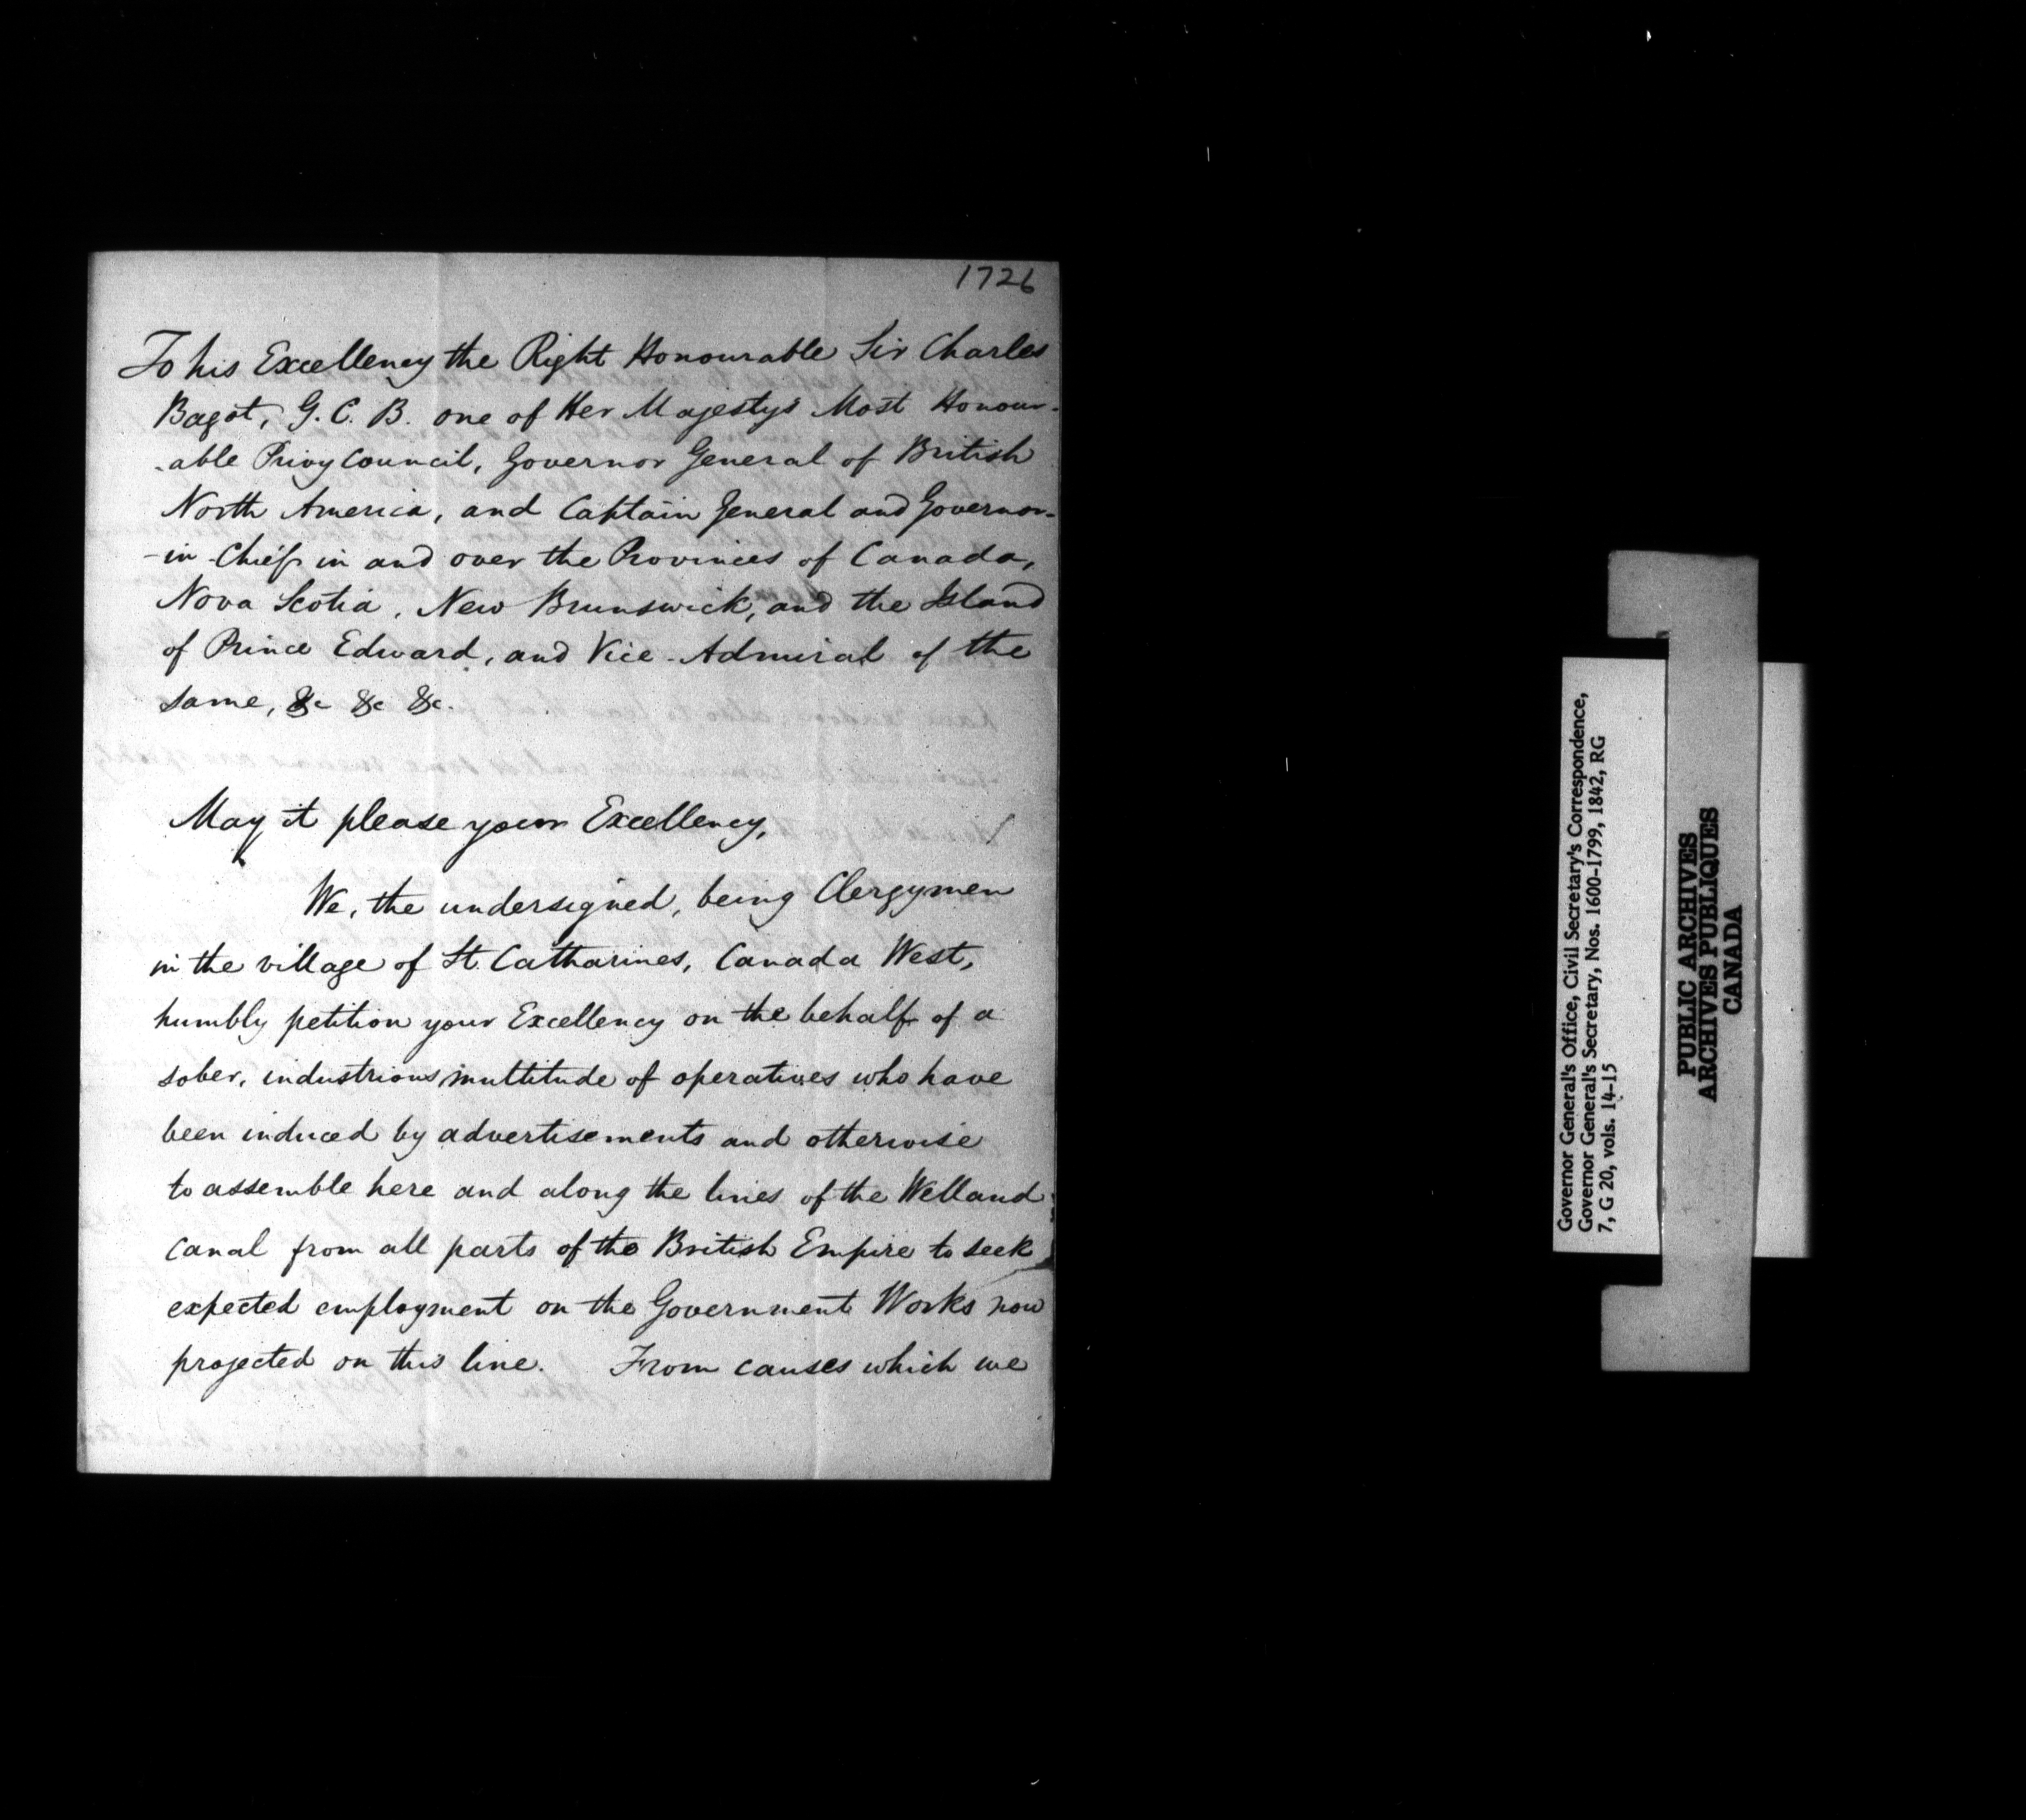 1726
To his Excellency the Right Honourable Sir Charles
Bagot, G. C. B. one of Her Majestys Most Honour-
-able Privy Council, Governor General of British
North America, and Captain General and Governor-
-in-Chief in and over the Provinces of Canada,
Nova Scotia, New Brunswick, and the Island
of Prince Edward, and Vice-Admiral of the
same, &c &c &c.
May it please your Excellency,
We, the undersigned, being Clergymen
in the village of St. Catharines, Canada West,
humbly petition your Excellency on the behalf of a
sober, industrious multitude of operatives who have
been induced by advertisements and otherwise
to assemble here and along the lines of the Welland
Canal from all parts of the British Empire to seek
expected employment on the Government Works now
projected on this line. From causes which we
Governor General's Office, Civil Secretary's Correspondence,
Governor General's Secretary, Nos. 1600-1799, 1842, RG
7, G 20, vols. 14-15
PUBLIC ARCHIVES
ARCHIVES PUBLIQUES
CANADA